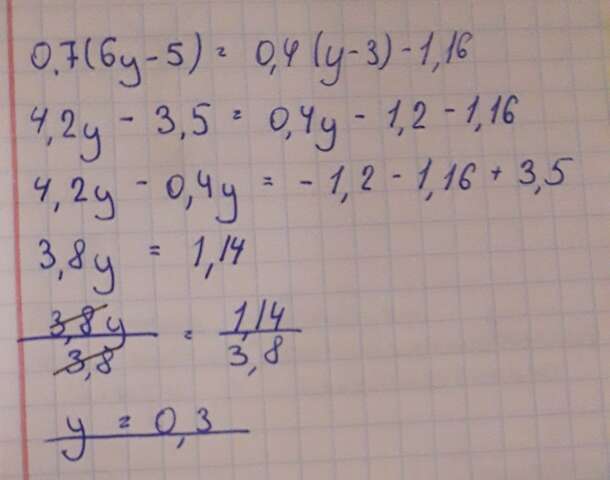 0,7(6y-5) = 0,4(y-3)-1,16
4,2y - 3,5 = 0,4y - 1,2 - 1,16
4,2y - 0,4y = - 1,2 - 1,16 + 3,5
3,8y = 1,14
3,8y/3,8 = 1,14/3,8
y = 0,3